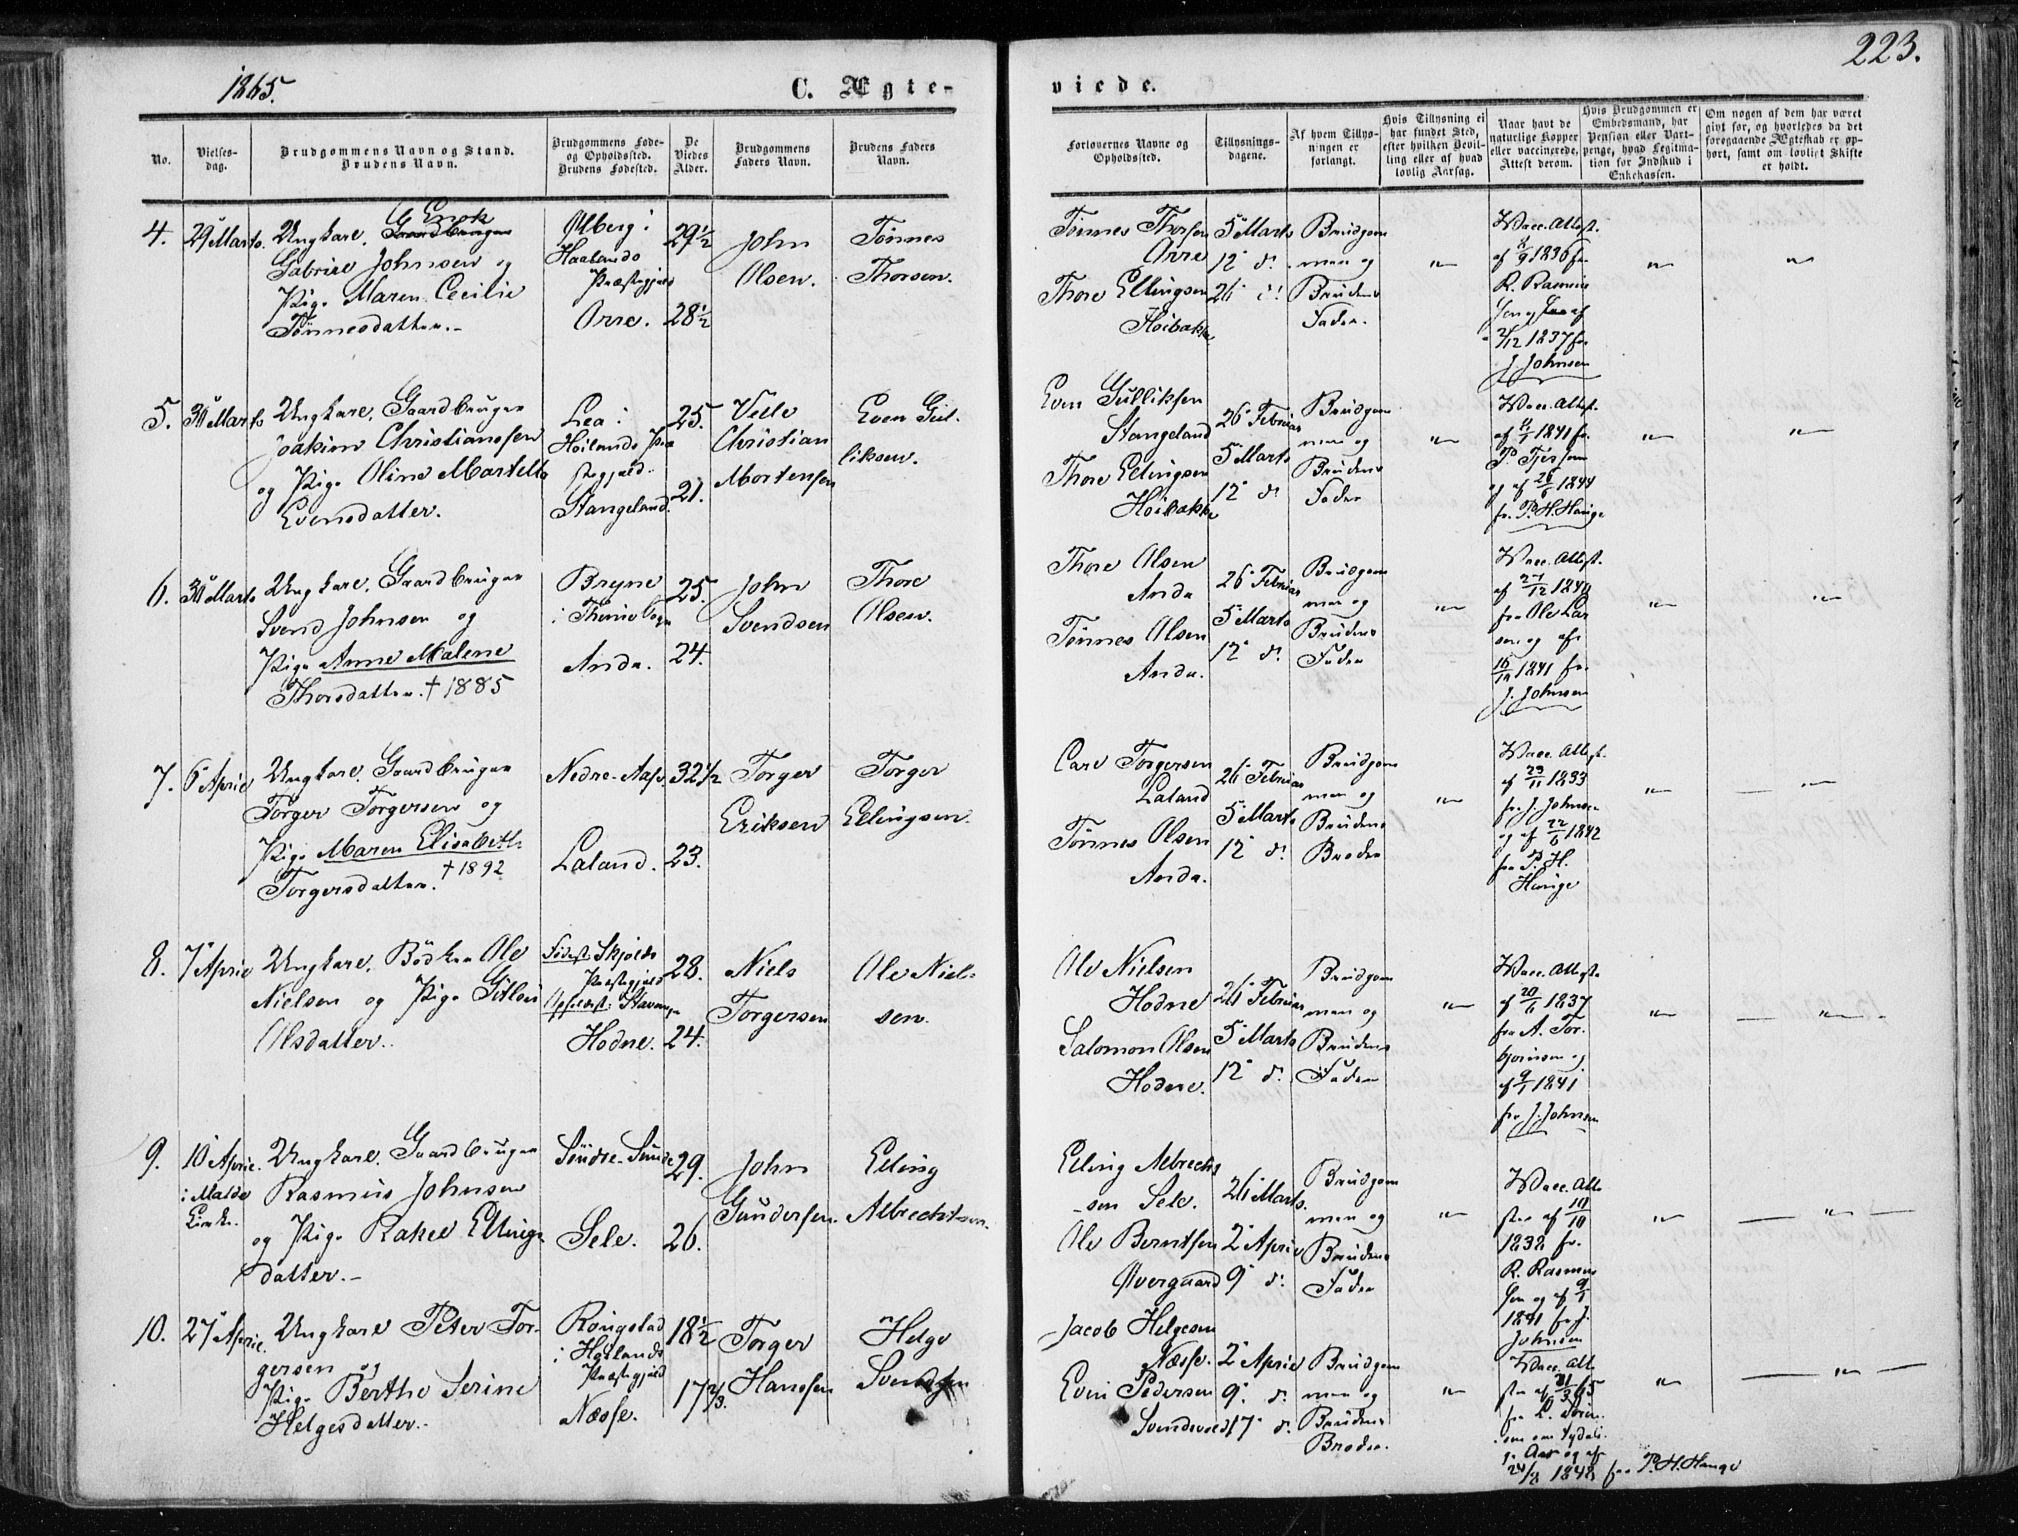 1865.
C. Ægte-
viede.
223.
No.
Vielses-
dag.
Brudgommens Navn og Stand.
Brudens Navn.
Brudgommens Føde-
og Opholdssted.
Brudens Fødested.
De
Viedes
Alder.
Brudgommens
Faders Navn.
Brudens Faders
Navn.
Forlovernes Navne og
Opholdssted.
Tillysnings-
dagene.
Af hvem Tillys-
ningen er
forlangt.
Hvis Tillysning ei
har fundet Sted,
efter hvilken Bevil-
ling eller af hvad
lovlig Aarsag.
Naar havt de
naturlige Kopper
eller vaccinerede,
Attest derom.
Hvis Brudgommen er
Embedsmand, har
Pension eller Vart-
penge, hvad Legitima-
tion for Indskud i
Enkekassen.
Om nogen af dem har været
givt før, og hvorledes da det
foregaaende Ægteskab er op-
hørt, samt om lovligt Skifte
er holdt.
4.
29 Marts.
Ungkarl, Gaardbruger
Gabriel Johnsen og
Pige Maren Cecilie
Tønnesdatter.-
Ølberg i
Haalands
Præstegjeld
Orre.
29½
28½
John
Olsen.
Tønnes
Thorsen.
Tønnes Thorsen
Orre
Thore Ellingsen
Høibakke
5 Marts
12 d.
26 d.
Brudgom-
men og
Brudens
Fader.
"
Vacc. Attest.
af 1836 fr.
R. Rasmus
sen og af
1837 fr.
J. Johnsen
"
"
5.
30 Marts
Ungkarl, Gaardbruger
Joakim Christiansen
og Pige Oline Martella
Evensdatter.
Lea i
Høilands Præ
stegjeld.
Stangeland.
25.
21.
Christian
Mortensen
Even Gul-
liksen.
Even Gulliksen
Stangeland
Thore Ellingsen
Høibakke
26 Februar
5 Marts
12 d.
Brudgom
men og
Brudens
Fader
"
Vacc. Attest.
af 1841 fr.
og af 26/6 1844
fr. P. H. Hauge
"
"
6.
30 Marts
Ungkarl, Gaardbruger
Svend Johnsen og
Pige Anne Malene
Thorsdatter. † 1885
Bryne
i Thime Sogn
Anda.
25.
24.
John
Svendsen
Thore
Olsen.
Thore Olsen
Anda
Tønnes Olsen
Anda.
26 Februar
5 Marts
12 d.
Brudgom
men og
Brudens
Fader
"
Vacc. Attest.
af 27/12 1840
fra Ole Lar
sen og af
1841 fr.
J. Johnsen
"
"
7.
6 April
Ungkarl, Gaardbruger
Torger Torgersen og
Pige Maren Elisabeth
Torgersdatter. † 1892
Nedre-Aase
Laland.
32½
23.
Torger
Eriksen
Torger
Ellingsen.
Carl Torgersen
Laland
Tønnes Olsen
Anda.
26 Februar
5 Marts
12 d.
Brudgom
men og
Brudens
Broder
"
Vacc. Attest.
af 1833
fr. J. Johnsen
og af 22/6 1842
fra P. H.
Hauge
"
"
8.
7 April
Ungkarl, Bødker Ole
Nielsen og Pige Gitlou
Olsdatter.
Fødest. Skjolds
Præstegjeld
Opholdst: Stavanger
Hodne.
28.
24.
Niels
Torgersen
Ole Niel-
sen.
Ole Nielsen
Hodne
Salomon Olsen
Hodne.
26 Februar
5 Marts
12 d.
Brudgom
men og
Brudens
Fader
"
Vacc. Attest.
af 1837
fra A. Tor-
bjørnsen og
af 1841
fra J. Johnsen
"
"
9.
10 April.
i Malde
Kirke.
Ungkarl, Gaardbruger
Rasmus Johnsen
og Pige Rakel Ellings
datter.-
Søndre-Sunde
Sele.
29.
26.
John
Gundersen.
Elling
Albrechtsen.
Elling Albrecht
-sen Sele.
Ole Berntsen
Øvergaard
26 Marts.
2 April
9 d.
Brudgom
men og
Brudens
Fader
"
Vacc. Atte
ster af 10/10
1838 fr.
R. Rasmus
sen og af
1841 fr. J.
Johnsen
"
"
10.
27 April.
Ungkarl Peter Tor-
gersen og
Pige Berthe Serine
Helgesdatter.
i Høilands
Præstegjeld
Næsse.
18½
17⅔.
Torger
Hansen
Helge
Svendsen
Jacob Helgesen
Næsse.
Even Pedersen
2 April
9 d.
17 d.
Brudgom
men og
Brudens
Broder.
"
Vacc. Atte
ster af
og af
24/8 1848 fra P. H. Hauge
"
"